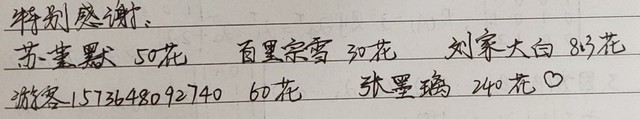 特别感谢:
苏堇默 50花 百里宗雪 30花 刘家大白 813花
游客1573648092740 60花 张墨璃 240花♡